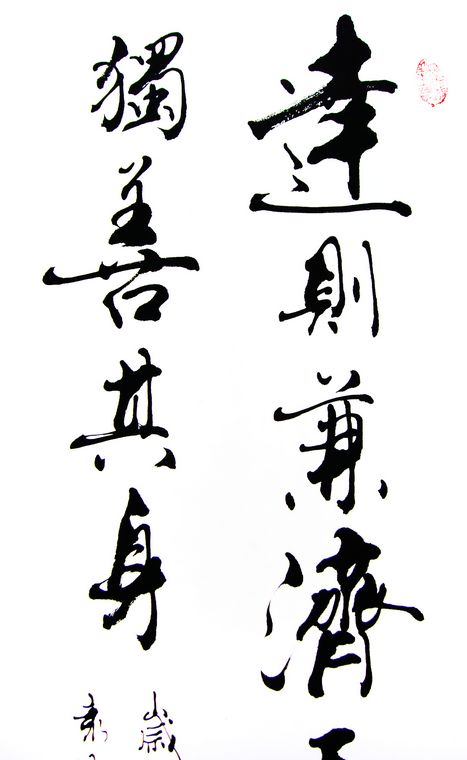 達則兼濟
獨善其身
歲